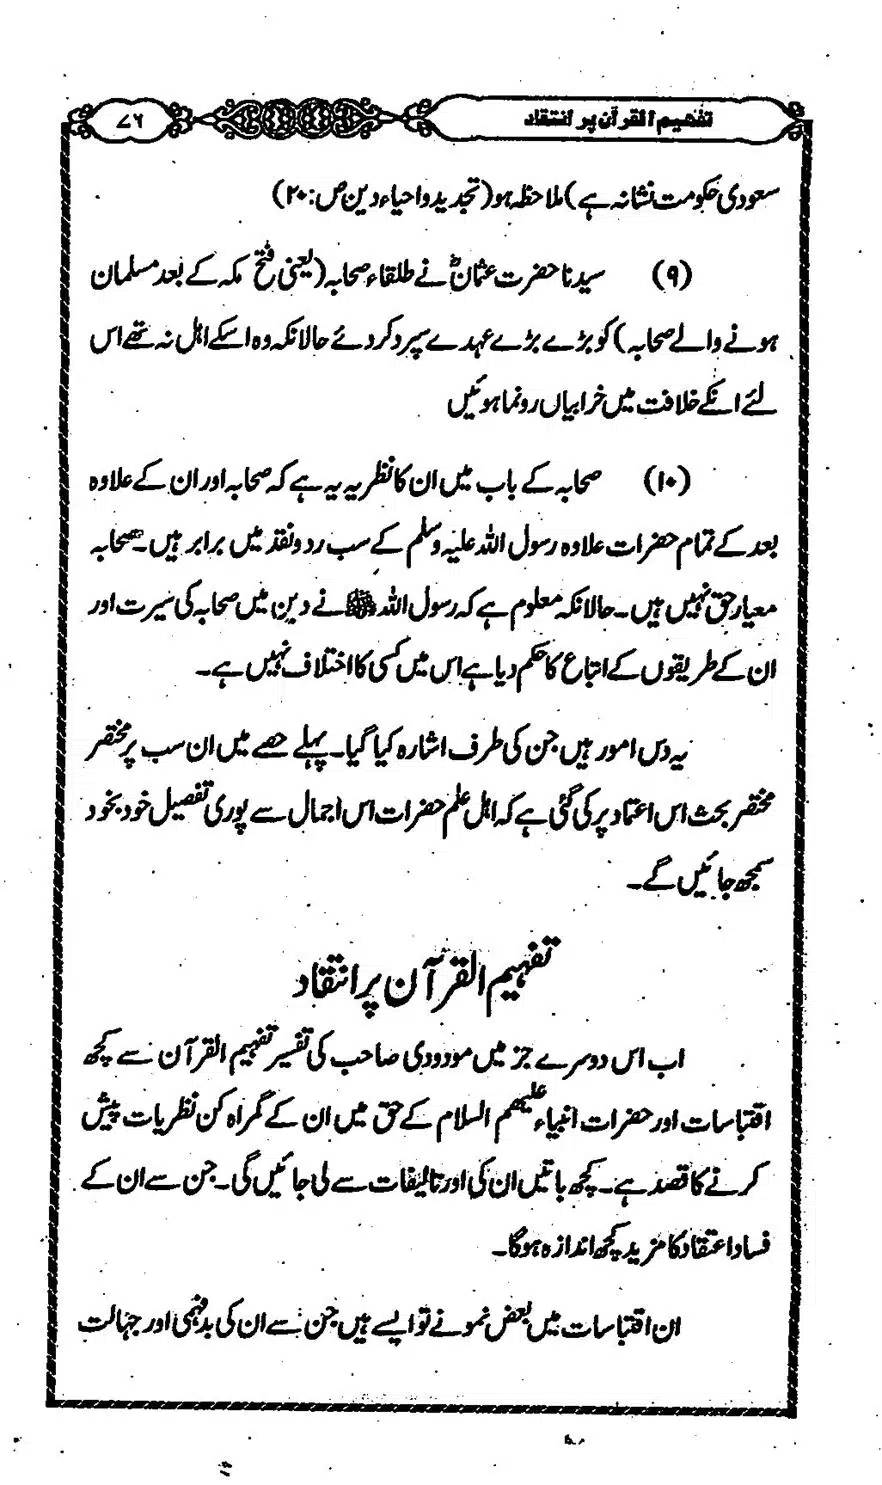 تفہیم القرآن پر انتقاد
۷۶
سعودی حکومت نشانہ ہے) ملاحظہ ہو (تجدید و احیاء دین ص: ۲۰)
(۹) سیدنا حضرت عثمانؓ نے طلقاء صحابہ (یعنی فتح مکہ کے بعد مسلمان
ہونے والے صحابہ) کو بڑے بڑے عہدے سپرد کردئے حالانکہ وہ اسکے اہل نہ تھے اس
لئے انکے خلافت میں خرابیاں رونما ہوئیں
(۱۰) صحابہ کے باب میں ان کا نظریہ یہ ہے کہ صحابہ اور ان کے علاوہ
بعد کے تمام حضرات علاوہ رسول اللہ علیہ وسلم کے سب رد و نقد میں برابر ہیں۔ صحابہ
معیار حق نہیں ہیں۔ حالانکہ معلوم ہے کہ رسول اللہ ﷺ نے دین میں صحابہ کی سیرت اور
ان کے طریقوں کے اتباع کا حکم دیا ہے اس میں کسی کا اختلاف نہیں ہے۔
یہ دس امور ہیں جن کی طرف اشارہ کیا گیا۔ پہلے حصے میں ان سب پر مختصر
مختصر بحث اس اعتماد پر کی گئی ہے کہ اہل علم حضرات اس اجمال سے پوری تفصیل خود بخود
سمجھ جائیں گے۔
تفہیم القرآن پر انتقاد
اب اس دوسرے جز میں مودودی صاحب کی تفسیر تفہیم القرآن سے کچھ
اقتباسات اور حضرات انبیاء علیہم السلام کے حق میں ان کے گمراہ کن نظریات پیش
کرنے کا قصد ہے۔ کچھ باتیں ان کی اور تالیفات سے لی جائیں گی۔ جن سے ان کے
فساد اعتقاد کا مزید کچھ اندازہ ہوگا۔
ان اقتباسات میں بعض نمونے تو ایسے ہیں جن سے ان کی بدفہمی اور جہالت